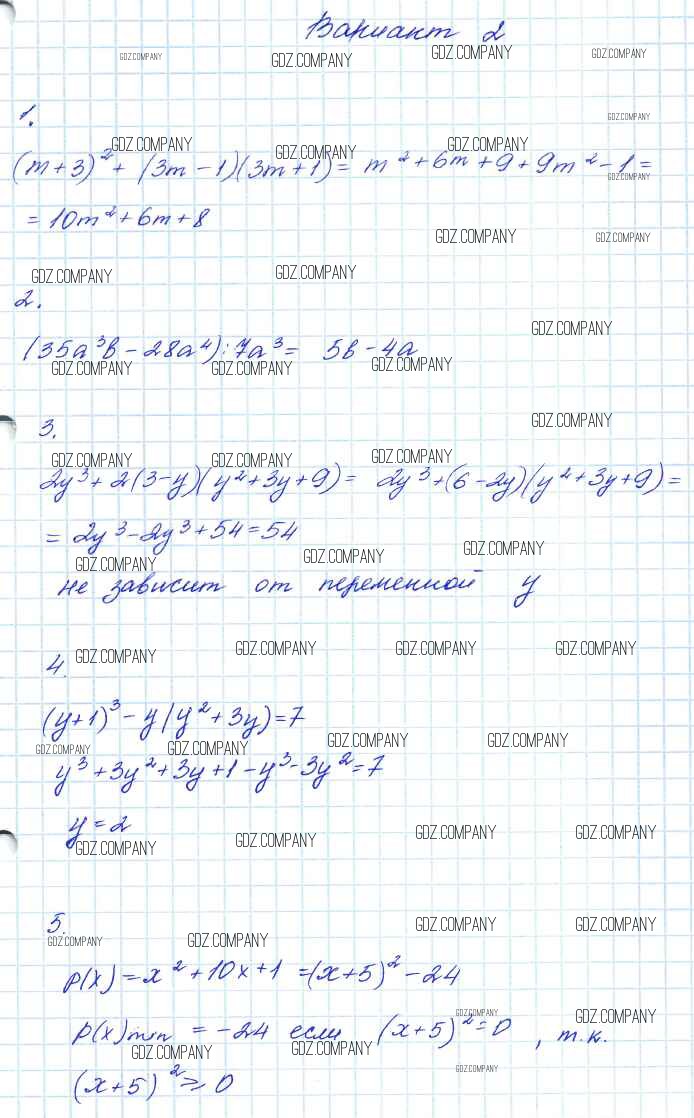 Вариант 2
GDZ.COMPANY GDZ.COMPANY GDZ.COMPANY GDZ.COMPANY
1.
GDZ.COMPANY
GDZ.COMPANY GDZ.COMPANY GDZ.COMPANY
(m+3)² + (3m-1)(3m+1) = m² + 6m + 9 + 9m² - 1 =
GDZ.COMPANY
= 10m² + 6m + 8
GDZ.COMPANY GDZ.COMPANY
GDZ.COMPANY GDZ.COMPANY
2.
GDZ.COMPANY
(35a³b - 28a⁴) : 7a³ = 5b - 4a
GDZ.COMPANY GDZ.COMPANY GDZ.COMPANY
3.
GDZ.COMPANY
GDZ.COMPANY GDZ.COMPANY GDZ.COMPANY
2y³ + 2(3-y)(y²+3y+9) = 2y³ + (6-2y)(y²+3y+9) =
= 2y³ - 2y³ + 54 = 54
GDZ.COMPANY GDZ.COMPANY GDZ.COMPANY
не зависит от переменной y
4.
GDZ.COMPANY GDZ.COMPANY GDZ.COMPANY GDZ.COMPANY
(y+1)³ - y(y²+3y) = 7
GDZ.COMPANY GDZ.COMPANY GDZ.COMPANY GDZ.COMPANY
y³ + 3y² + 3y + 1 - y³ - 3y² = 7
y = 2
GDZ.COMPANY GDZ.COMPANY GDZ.COMPANY GDZ.COMPANY
5.
GDZ.COMPANY GDZ.COMPANY
GDZ.COMPANY GDZ.COMPANY
p(x) = x² + 10x + 1 = (x+5)² - 24
GDZ.COMPANY GDZ.COMPANY
p(x)min = -24 если (x+5)² = 0 , т.к.
GDZ.COMPANY GDZ.COMPANY
GDZ.COMPANY
(x+5)² ≥ 0